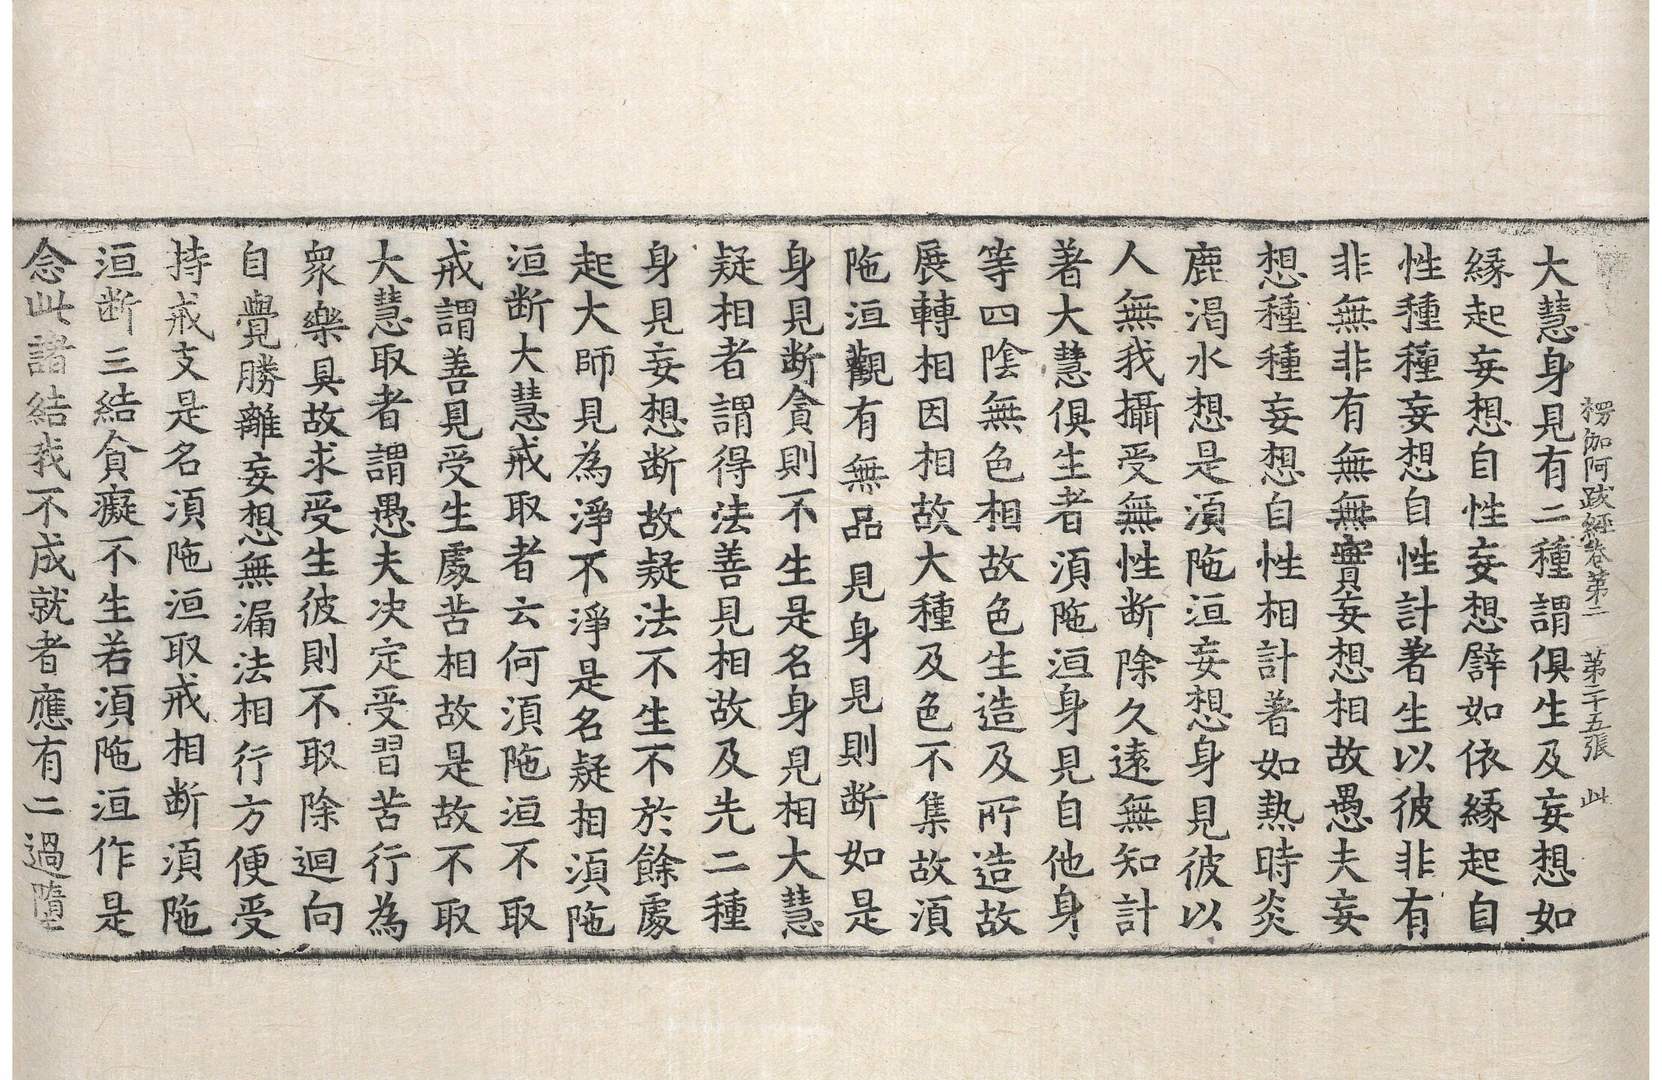 楞伽阿跋經卷第二　第二十五張　此
大慧身見有二種謂俱生及妄想如
緣起妄想自性妄想譬如依緣起自
性種種妄想自性計著生以彼非有
非無非有無無實妄想相故愚夫妄
想種種妄想自性相計著如熱時炎
鹿渴水想是須陁洹妄想身見彼以
人無我攝受無性斷除久遠無知計
著大慧俱生者須陁洹身見自他身
等四陰無色相故色生造及所造故
展轉相因相故大種及色不集故須
陁洹觀有無品見身見則断如是
身見断貪則不生是名身見相大慧
疑相者謂得法善見相故及先二種
身見妄想断故疑法不生不於餘處
起大師見為淨不淨是名疑相須陁
洹断大慧戒取者云何須陁洹不取
戒謂善見受生處苦相故是故不取
大慧取者謂愚夫決定受習苦行為
衆樂具故求受生彼則不取除迴向
自覺勝離妄想無漏法相行方便受
持戒支是名須陁洹取戒相断須陁
洹断三結貪癡不生若須陁洹作是
念此諸結我不成就者應有二過墮